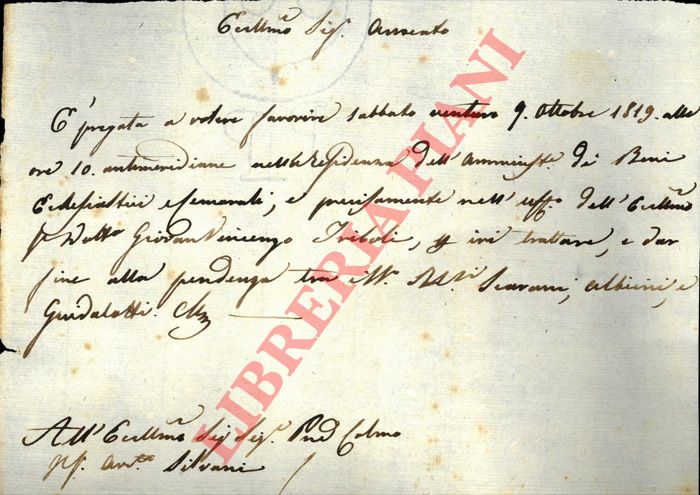 Eccllmo Sigr. Avvocato
È pregata a voler favorire sabbato venturo 9. Ottobre 1819. alle
ore 10. antimeridiane nella Residenza dell'Amministe. de Beni
Eclesiastici e Camerali, e precisamente nell'uffo. dell'Eccllmo
Sr Dottr Giovan Vincenzo Triboli, p ivi trattare, e dar
fine alla pendenza tra Scarani, Albicini, e
Guidalotti.
All'Eccllmo Sig Sigr. Pnd Colmo
Avvto Silvani
LIBRERIA PIANI